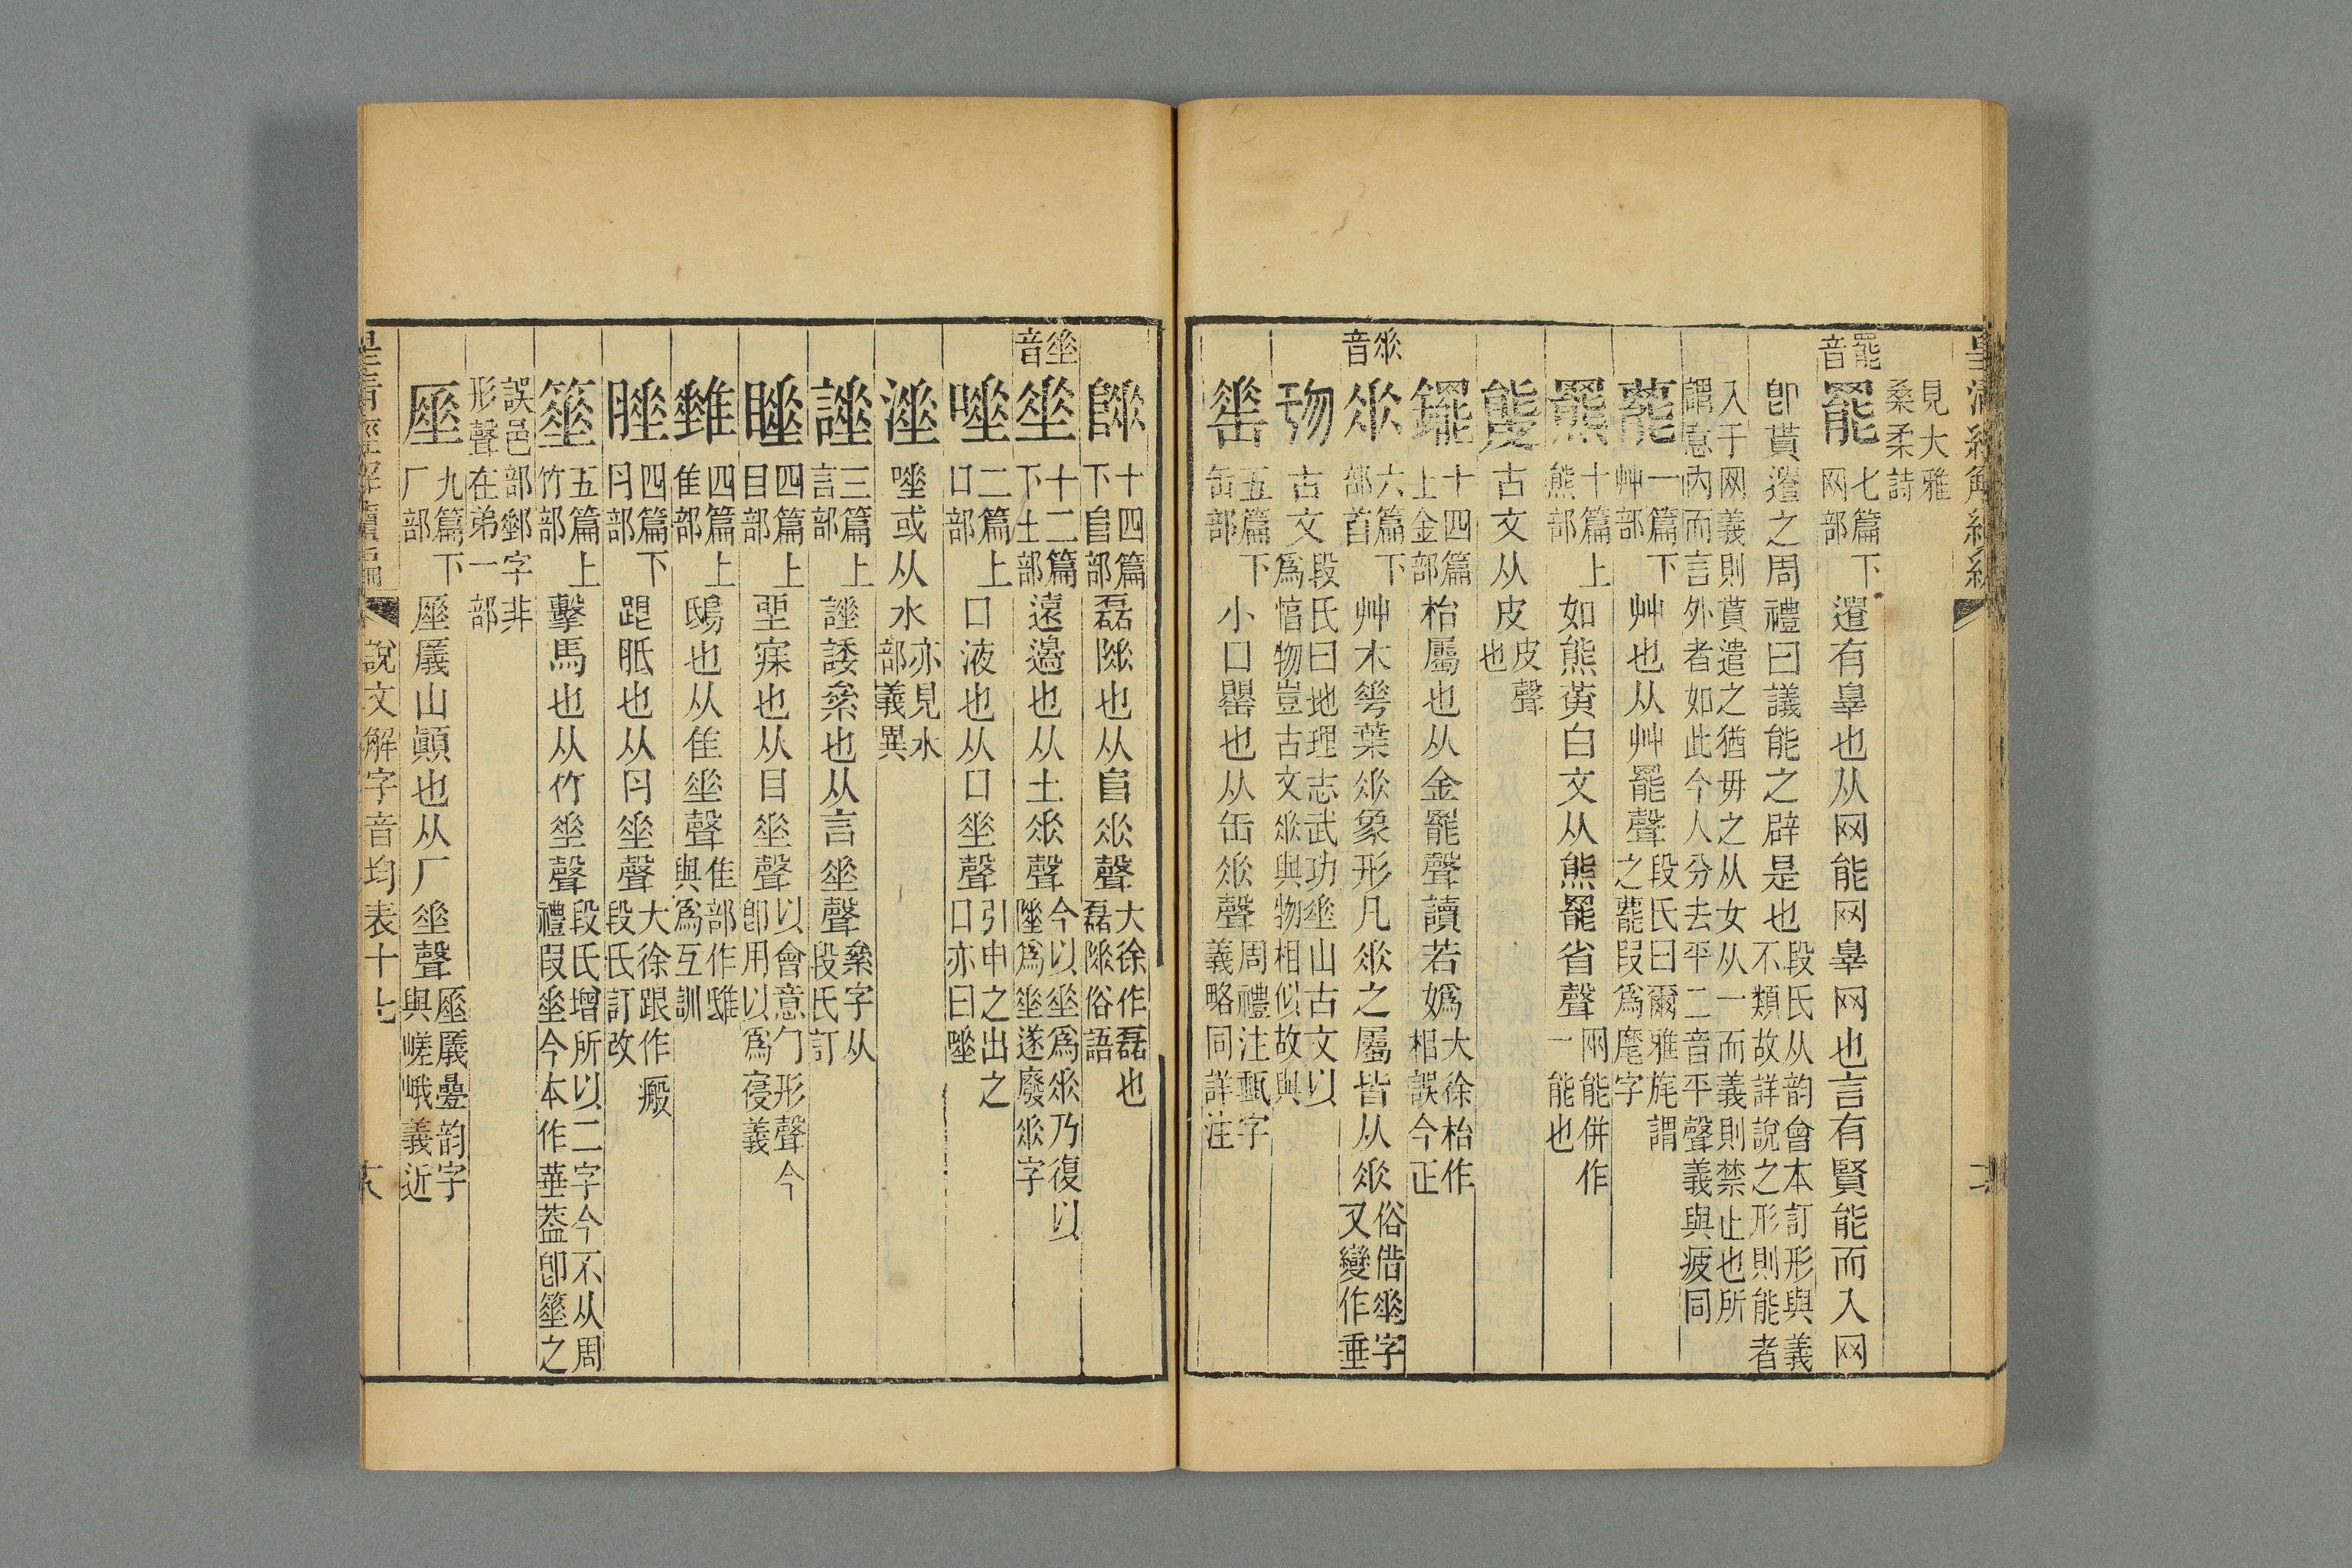 皇清經解續編
見大雅
桑柔詩
罷音
罷 七篇下网部 遣有辠也从网能网辠网也言有賢能而入网
卽貰遣之周禮曰議能之辟是也 段氏从韵會本訂形與義不類故詳說之形則能者
入于网義則貰遣之猶毋之从女从一而義則禁止也所
謂意內而言外者如此今人分去平二音平聲義與疲同
䕗 一篇下艸部 艸也从艸罷聲 段氏曰爾雅旄謂之䕗叚爲麾字
羆 十篇上熊部 如熊黃白文从熊罷省聲 网能倂作一能也
古文从皮 皮聲也
鑼 十四篇上金部 枱屬也从金罷聲讀若嬀 大徐枱作梠誤今正
𠂹音
𠂹 六篇下部首 艸木華葉𠂹象形凡𠂹之屬皆从𠂹 俗借𠌶字又變作垂
𠄒 古文 段氏曰地理志武功垂山古文以爲㥿物豈古文𠂹與物相似故與
𦈵 五篇下缶部 小口罌也从缶𠂹聲 周禮注甀字義略同詳注
𨹹 十四篇下𨸏部 磊𨹹也从𨸏𠂹聲 大徐作磊也磊𨹹俗語
垂音
垂 十二篇下土部 遠邊也从土𠂹聲 今以垂爲𠂹乃復以陲爲垂遂廢𠂹字
唾 二篇上口部 口液也从口垂聲 引申之出之口亦曰唾
涶 唾或从水 亦見水部義異
諈 三篇上言部 諈諉絫也从言垂聲 絫字从段氏訂
睡 四篇上目部 坐寐也从目垂聲 以會意勹形聲今卽用以爲寑義
雖 四篇上隹部 鴟也从隹垂聲 隹部作雎與爲互訓
腄 四篇下⺼部 跟胝也从⺼垂聲 大徐跟作瘢段氏訂改
箠 五篇上竹部 擊馬也从竹垂聲 段氏增所以二字今不从周禮叚垂今本作華葢卽箠之
誤邑部鄧字非
形聲在弟一部
厜 九篇下厂部 厜㕒山顚也从厂垂聲 厜㕒曡韵字與嵯峨義近
皇清經解續編 說文解字音均表十七